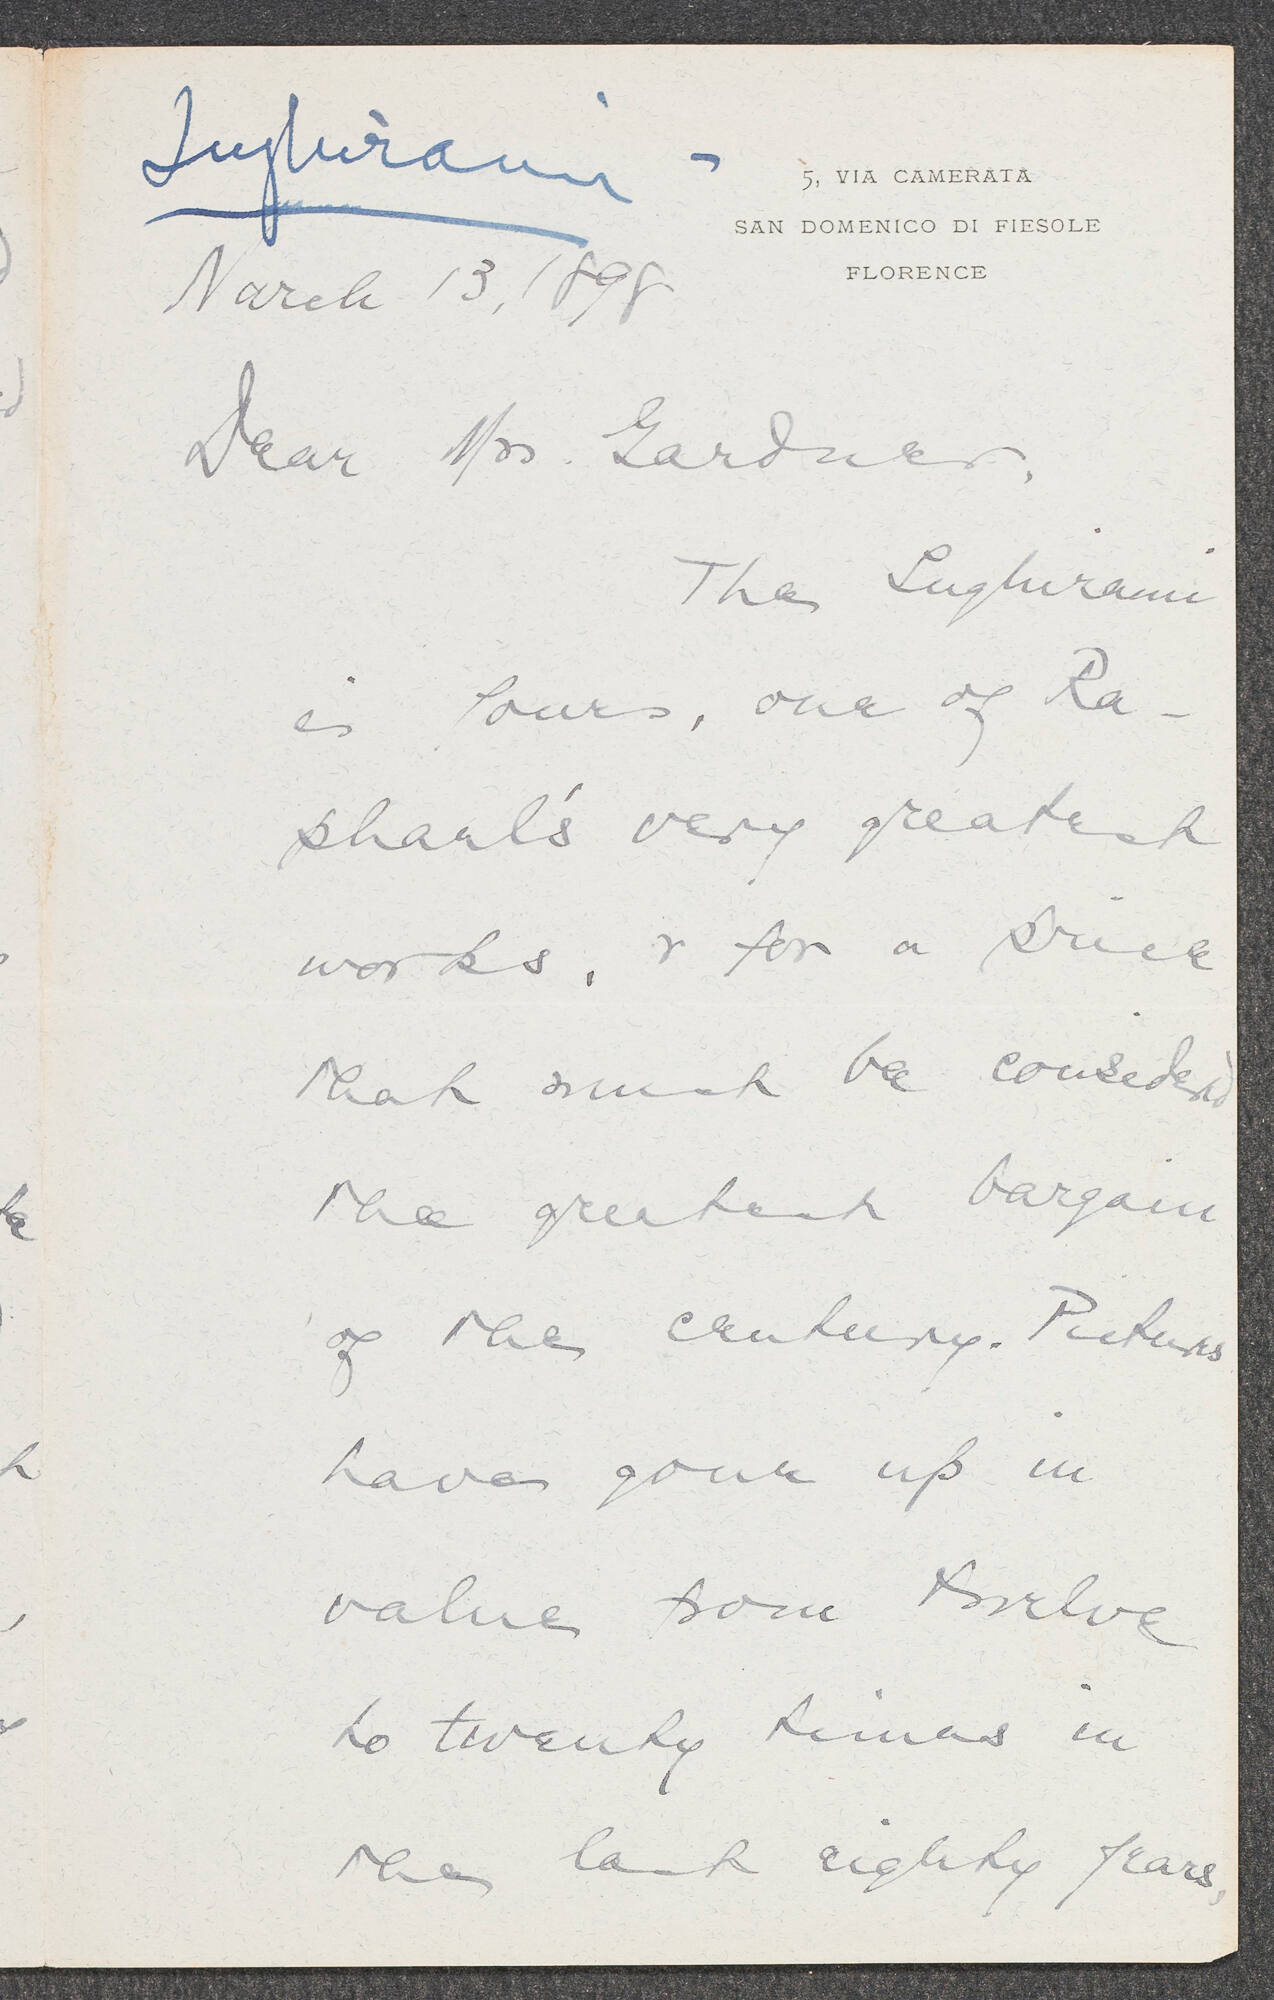 Inghirami -
5, VIA CAMERATA
SAN DOMENICO DI FIESOLE
FLORENCE
March 13, 1898
Dear Mrs. Gardner,
The Inghirami
is yours, one of Ra-
phael's very greatest
works, & for a price
that must be considered
the greatest bargain
of the century. Pictures
have gone up in
value from twelve
to twenty times in
the last eighty years,